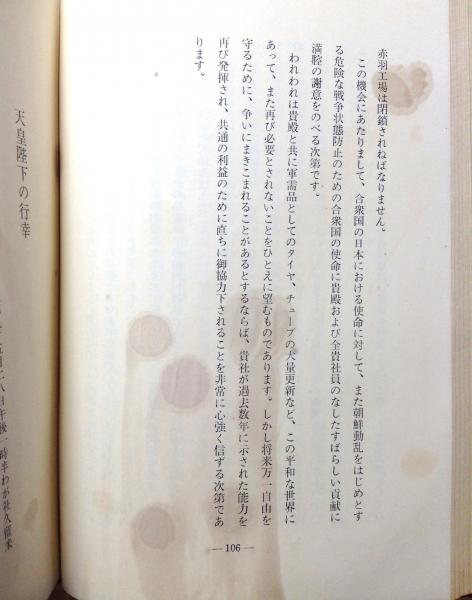 赤羽工場は閉鎖されねばなりません。
この機会にあたりまして、合衆国の日本における使命に対して、また朝鮮動乱をはじめとす
る危険な戦争状態防止のための合衆国の使命に貴殿および全貴社員のなしたすばらしい貢献に
満腔の謝意をのべる次第です。
われわれは貴殿と共に軍需品としてのタイヤ、チューブの大量更新など、この平和な世界に
あって、また再び必要とされないことをひとえに望むものであります。しかし将来万一自由を
守るために、争いにまきこまれることがあるとするならば、貴社が過去数年に示された能力を
再び発揮され、共通の利益のために直ちに御協力下されることを非常に心強く信ずる次第であ
ります。
—106—
天皇陛下の行幸
五月二八日午後一時半わが社久留米